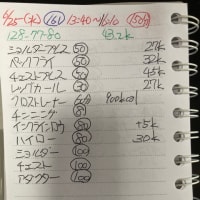 6/25(水) (161) 13:40~16:10 (150分)
128-77-80 43.2k
ショルダープレス (50) 27k
バックフライ (50) 32k
チェストプレス (50) 45k
レッグカール (30) 27k
クロストレーナー 60分 900kcal
チンニング (81)
インクラインロウ (80) +5k
ハイロー (80) 30k
ショルダー (100)
チェスト (100)
アダクター (100)